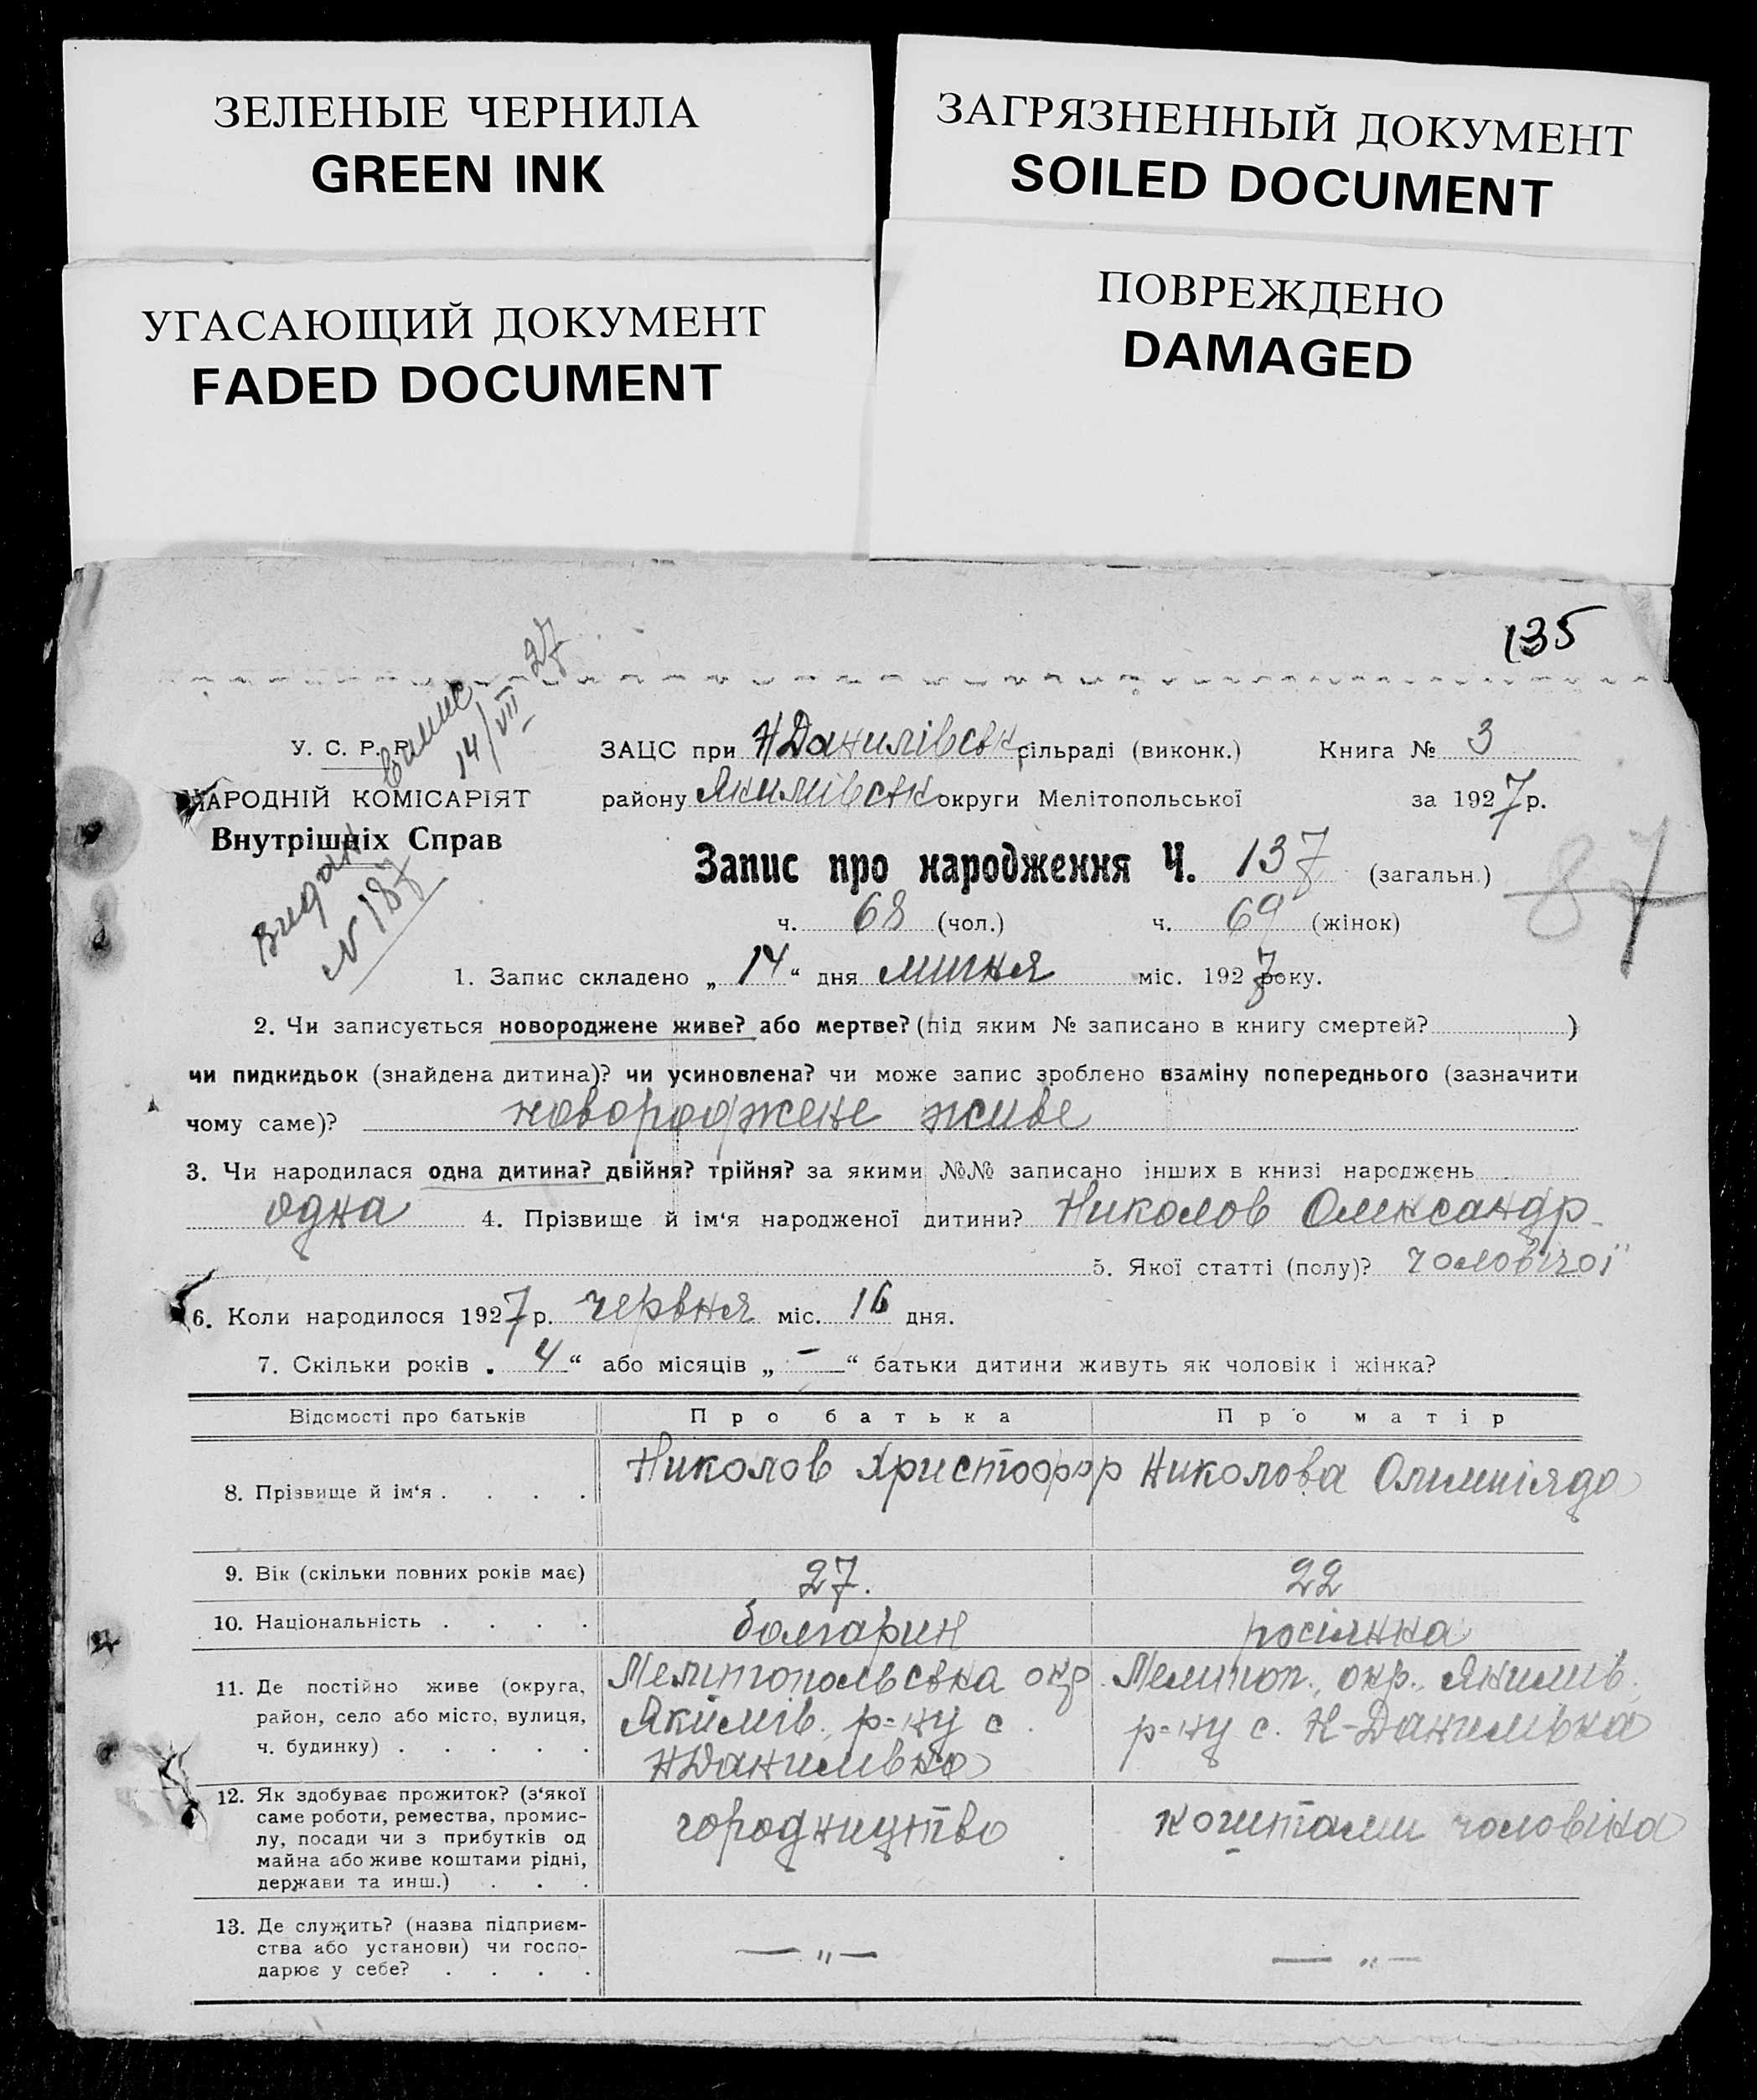 ЗЕЛЕНЫЕ ЧЕРНИЛА
GREEN INK
ЗАГРЯЗНЕННЫЙ ДОКУМЕНТ
SOILED DOCUMENT
УГАСАЮЩИЙ ДОКУМЕНТ
FADED DOCUMENT
ПОВРЕЖДЕНО
DAMAGED
135
14/VII 27
У. С. Р. Р.
НАРОДНІЙ КОМІСАРІЯТ
Внутрішніх Справ
Видан
N 187
ЗАЦС при НДанилівськ сільраді (виконк.) Книга № 3
району Якимівськ округи Мелітопольської за 1927 р.
Запис про народження Ч. 137 (загальн.) 87
ч. 68 (чол.) ч. 69 (жінок)
1. Запис складено „ 14 “ дня липня міс. 1927 року.
2. Чи записується новороджене живе? або мертве? (під яким № записано в книгу смертей? )
чи пидкидьок (знайдена дитина)? чи усиновлена? чи може запис зроблено взаміну попереднього (зазначити
чому саме)? новороджене живе
3. Чи народилася одна дитина? двійня? трійня? за якими №№ записано інших в книзі народжень
одна 4. Прізвище й ім‘я народженої дитини? Николов Олександр
5. Якої статті (полу)? чоловічої
6. Коли народилося 1927 р. червня міс. 16 дня.
7. Скільки років „ 4 “ або місяців „ — “ батьки дитини живуть як чоловік і жінка?
Відомості про батьків Про батька Про матір
8. Прізвище й ім‘я . . . . Николов Христофор Николова Олимпіяда
9. Вік (скільки повних років має) 27. 22
10. Національність . . . . болгарин росіянка
11. Де постійно живе (округа, Мелітопольська окр. Мелитоп., окр., Якимів.
район, село або місто, вулиця, Якимів. р-ну с. р-ну с. Н-Данилівка
ч. будинку) . . . . . НДанилівка
12. Як здобуває прожиток? (з‘якої
саме роботи, ремества, промис-
лу, посади чи з прибутків од городництво коштами чоловіка
майна або живе коштами рідні,
держави та инш.) . . .
13. Де служить? (назва підприєм-
ства або установи) чи госпо- — „ — — „ —
дарює у себе? . . . .